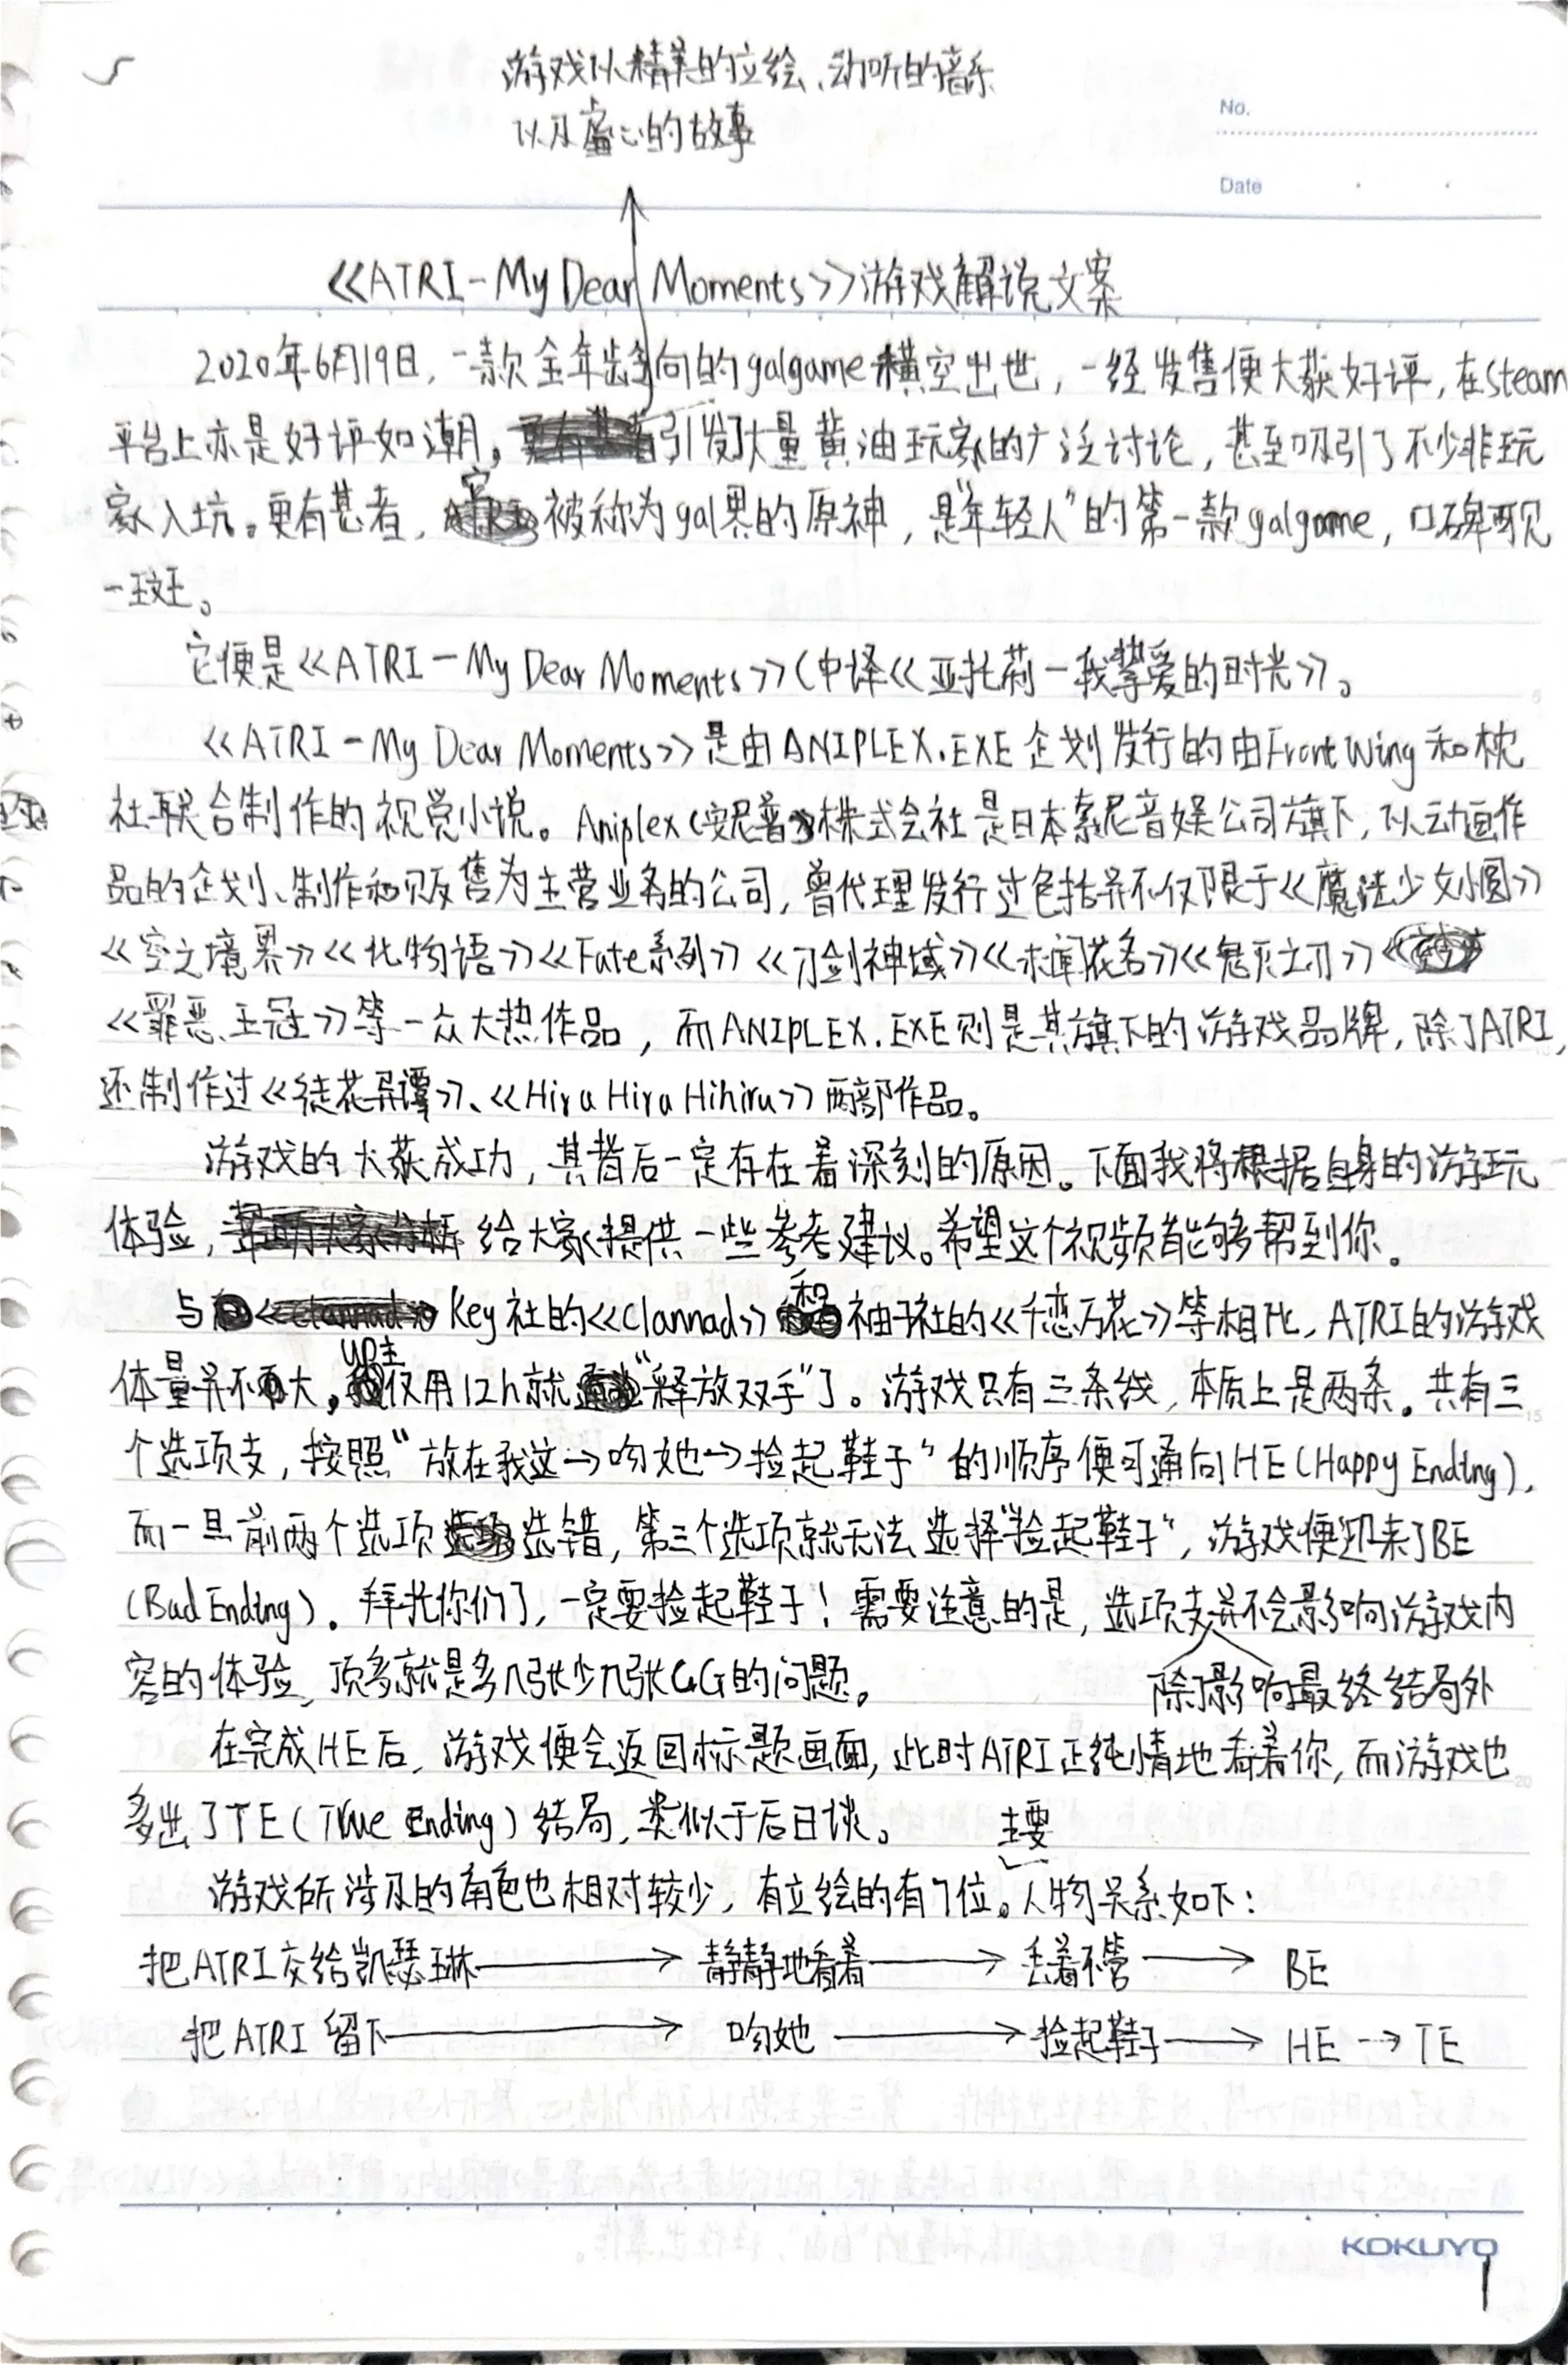 游戏以精美的立绘、动听的音乐
以及富心的故事
No.
Date
《ATRI-My Dear Moments》游戏解说文案
2020年6月19日,一款全年龄向的galgame横空出世,一经发售便大获好评,在steam
平台上亦是好评如潮,引发了大量黄油玩家的广泛讨论,甚至吸引了不少非玩
家入坑。更有甚者,它被称为gal界的原神,是"年轻人"的第一款galgame,口碑可见
一斑。
它便是《ATRI-My Dear Moments》(中译《亚托莉-我挚爱的时光》。
《ATRI-My Dear Moments》是由ANIPLEX.EXE企划发行的由FrontWing和枕
社联合制作的视觉小说。Aniplex(安尼普)株式会社是日本索尼音娱公司旗下,以动画作
品的企划、制作和贩售为主营业务的公司,曾代理发行过包括并不仅限于《魔法少女小圆》
《空之境界》《化物语》《Fate系列》《刀剑神域》《未闻花名》《鬼灭之刃》
《罪恶王冠》等一众大热作品,而ANIPLEX.EXE则是其旗下的游戏品牌,除了ATRI,
还制作过《徒花异谭》、《Hira Hira Hihiru》两部作品。
游戏的大获成功,其背后一定存在着深刻的原因。下面我将根据自身的游玩
体验,给大家提供一些参考建议。希望这个视频能够帮到你。
与Key社的《Clannad》和柚子社的《千恋万花》等相比,ATRI的游戏
体量并不大,up主仅用12h就"释放双手"了。游戏只有三条线,本质上是两条。共有三
个选项支,按照"放在我这→吻她→捡起鞋子"的顺序便可通向HE(Happy Ending),
而一旦前两个选项选错,第三个选项就无法选择"捡起鞋子",游戏便迎来了BE
(Bad Ending)。拜托你们了,一定要捡起鞋子!需要注意的是,选项支并不会影响游戏内
容的体验,顶多就是多几张少几张CG的问题。
除了影响最终结局外
在完成HE后,游戏便会返回标题画面,此时ATRI正纯情地看着你,而游戏也
多出了TE(True Ending)结局,类似于后日谈。
主要
游戏所涉及的角色也相对较少,有立绘的有7位。人物关系如下:
把ATRI交给凯瑟琳→静静地看着→丢着不管→BE
把ATRI留下→吻她→捡起鞋子→HE→TE
KOKUYO
1